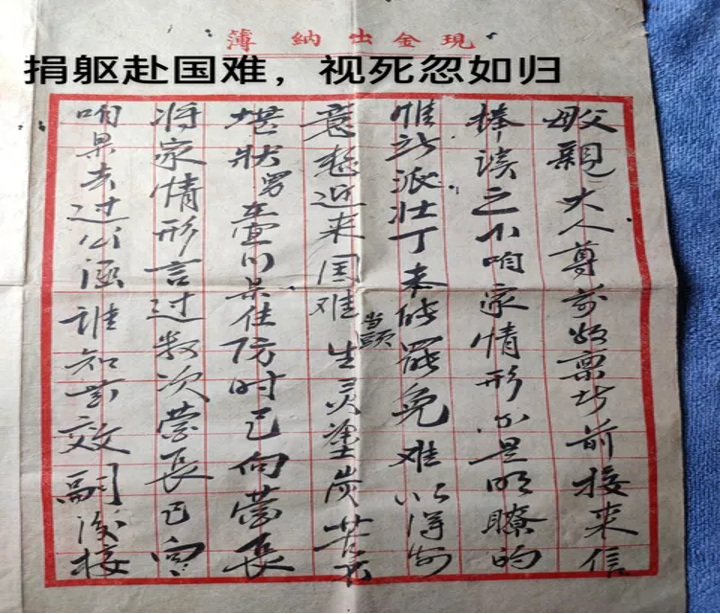 現金出納簿
捐躯赴国难，视死忽如归
父母親大人尊前敬禀者前接来信
捧读之下咱家情形如是明瞭的
惟派壮丁未能罷免难以得
意想近来国难当頭生灵塗炭苦不
堪狀男川県住防时已向营長
将家情形言过数次营長已向
咱県去过公函谁知無效嗣後接